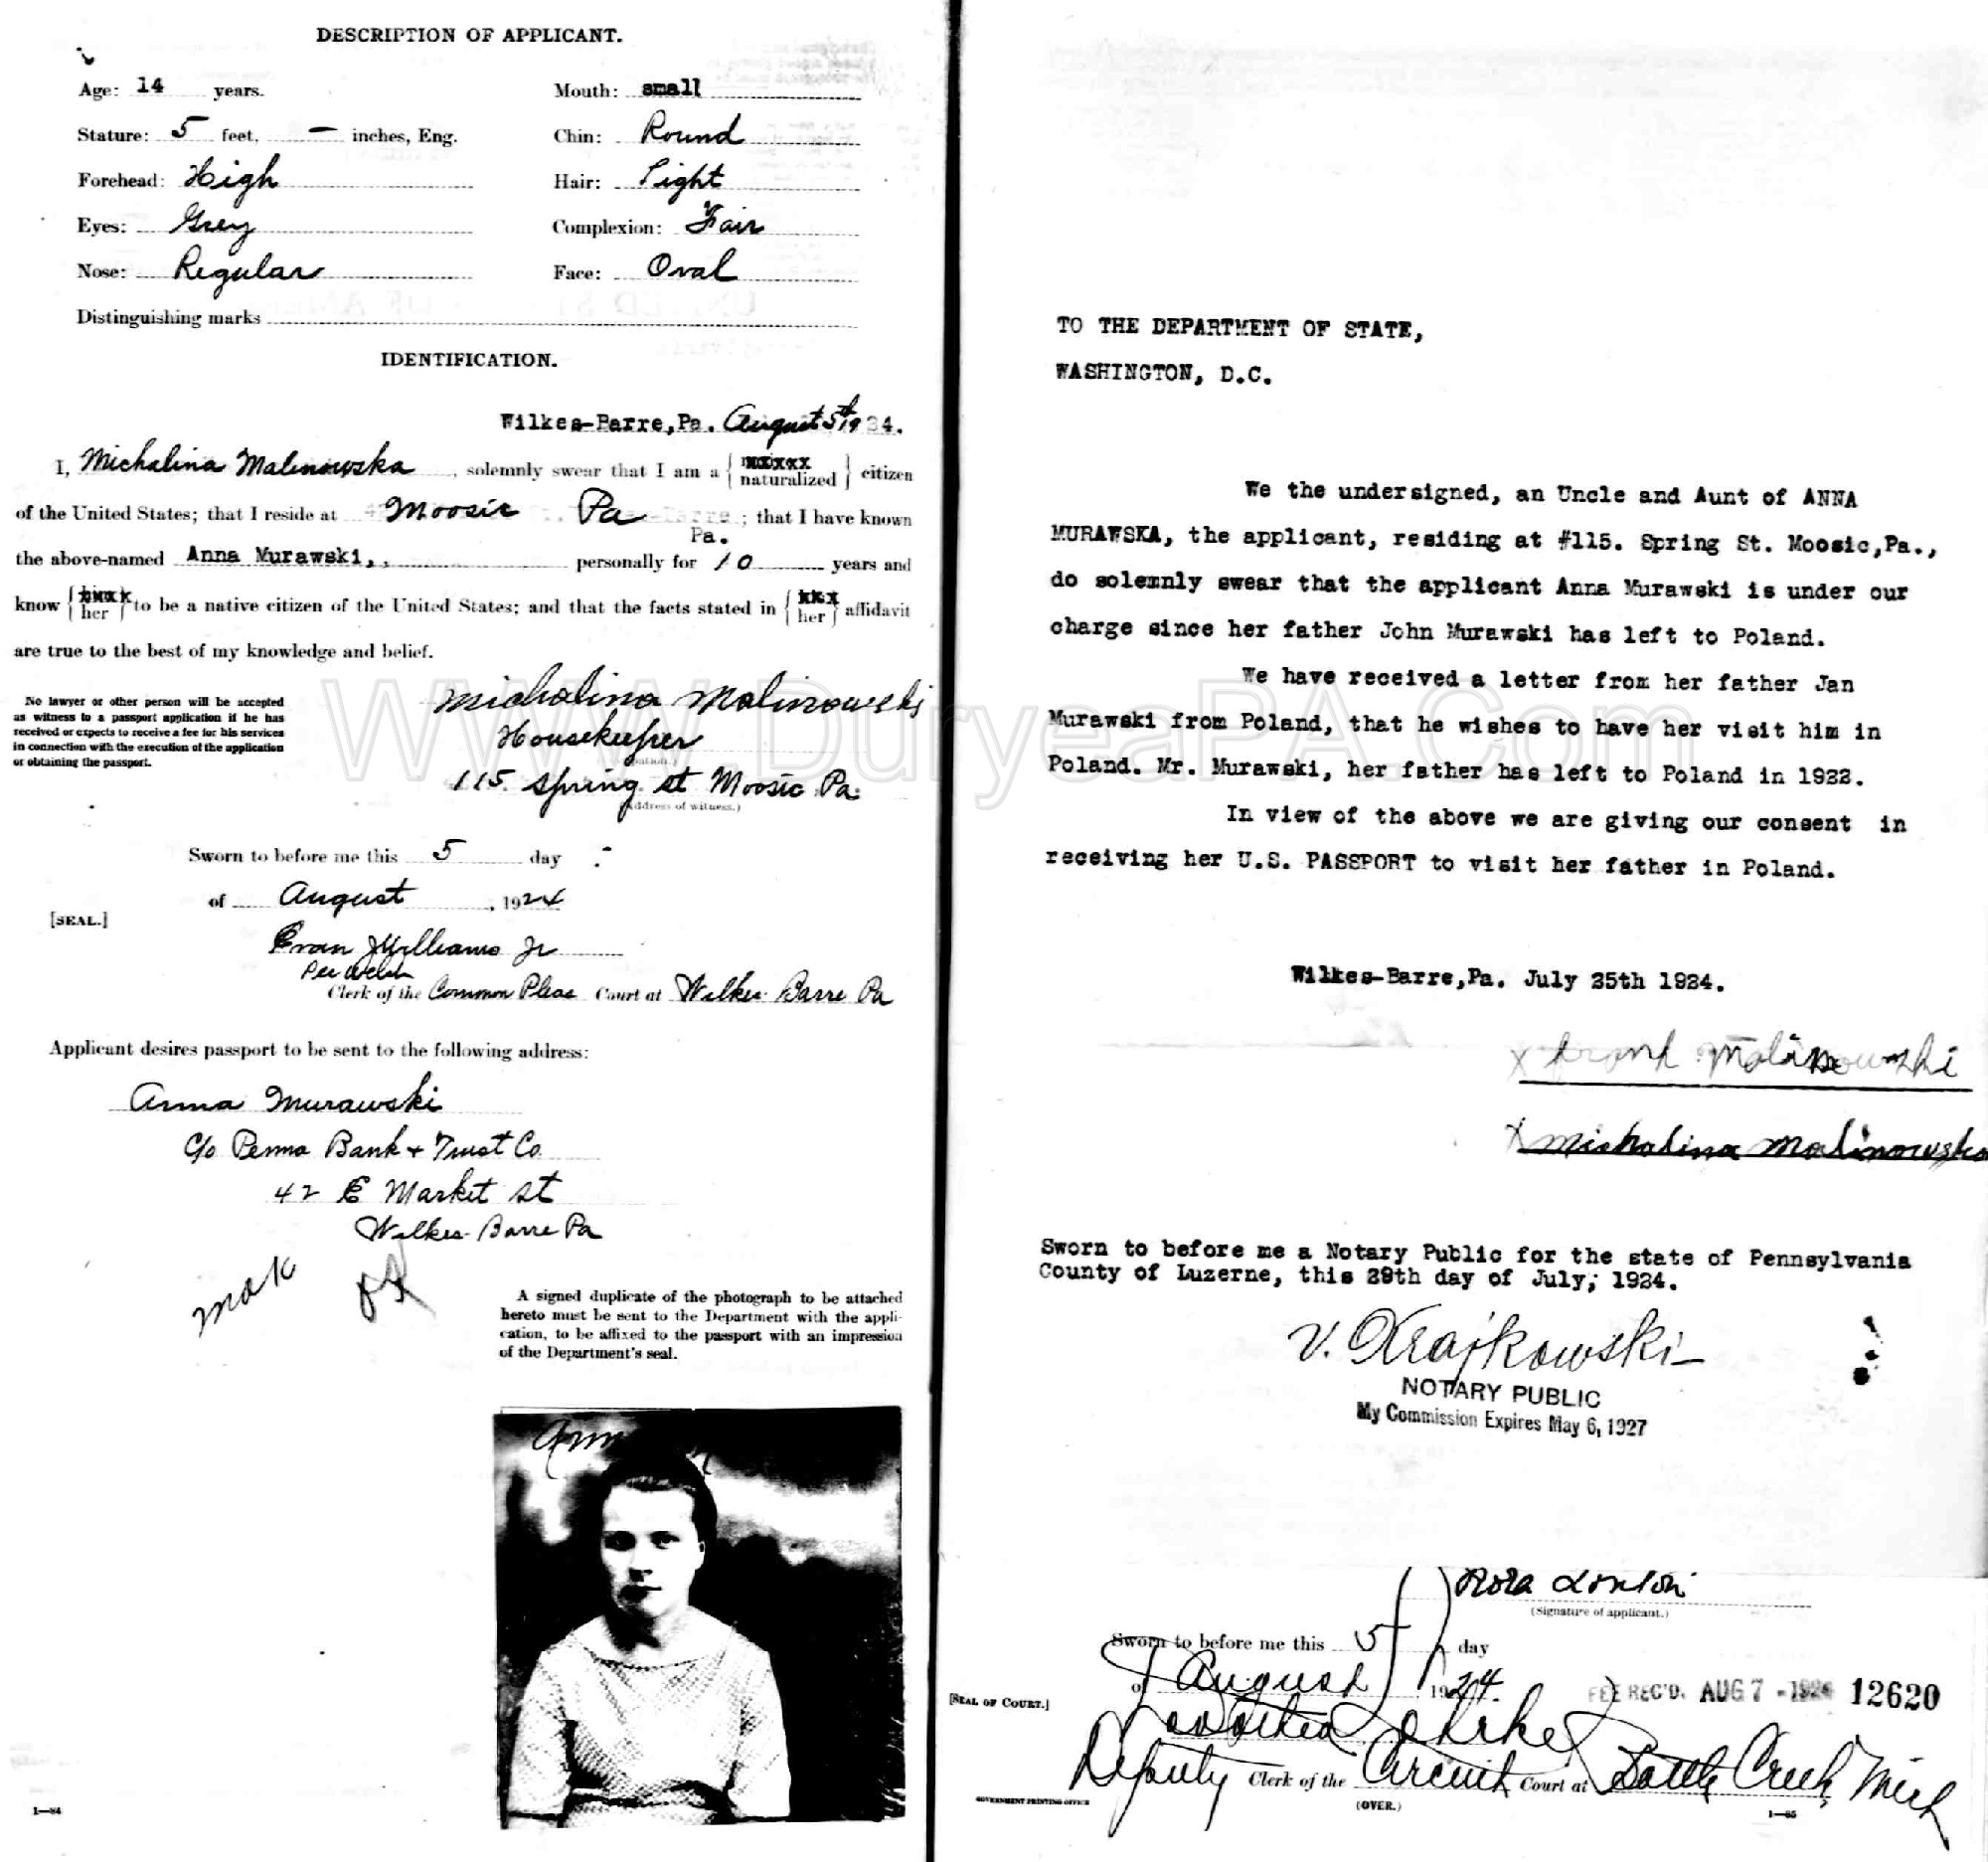 DESCRIPTION OF APPLICANT.
Age: 14 years.
Mouth: small
Stature: 5 feet, — inches, Eng.
Chin: Round
Forehead: High
Hair: Light
Eyes: Grey
Complexion: Fair
Nose: Regular
Face: Oval
Distinguishing marks
IDENTIFICATION.
Wilkes-Barre, Pa. August 5th 1924.
I, Michalina Malinowska, solemnly swear that I am a { xxxxxx naturalized } citizen
of the United States; that I reside at Moosic Pa Pa.; that I have known
the above-named Anna Murawski,, personally for 10 years and
know { xxxx her } to be a native citizen of the United States; and that the facts stated in { xxx her } affidavit
are true to the best of my knowledge and belief.
No lawyer or other person will be accepted
as witness to a passport application if he has
received or expects to receive a fee for his services
in connection with the execution of the application
or obtaining the passport.
Michalina Malinowski
Housekeeper
115 Spring St Moosic Pa.
(Address of witness.)
Sworn to before me this 5 day
of August, 1924
[SEAL.]
Evan J Williams Jr
Per Welsh
Clerk of the Common Pleas Court at Wilkes-Barre Pa
Applicant desires passport to be sent to the following address:
Anna Murawski
c/o Penna Bank + Trust Co.
42 E Market St
Wilkes-Barre Pa
A signed duplicate of the photograph to be attached
hereto must be sent to the Department with the appli-
cation, to be affixed to the passport with an impression
of the Department's seal.
Ann
1—84
TO THE DEPARTMENT OF STATE,
WASHINGTON, D.C.
We the undersigned, an Uncle and Aunt of ANNA
MURAWSKA, the applicant, residing at #115. Spring St. Moosic,Pa.,
do solemnly swear that the applicant Anna Murawski is under our
charge since her father John Murawski has left to Poland.
We have received a letter from her father Jan
Murawski from Poland, that he wishes to have her visit him in
Poland. Mr. Murawski, her father has left to Poland in 1922.
In view of the above we are giving our consent in
receiving her U.S. PASSPORT to visit her father in Poland.
Wilkes-Barre,Pa. July 25th 1924.
x Frank Malinowski
x Michalina Malinowska
Sworn to before me a Notary Public for the state of Pennsylvania
County of Luzerne, this 29th day of July, 1924.
V. Krajkowski
NOTARY PUBLIC
My Commission Expires May 6, 1927
Roza
(Signature of applicant.)
Sworn to before me this 5 day
of August 1924.
FEE REC'D. AUG 7 - 1924 12620
[SEAL OF COURT.]
Deputy Clerk of the Circuit Court at Battle Creek, Mich
GOVERNMENT PRINTING OFFICE
(OVER.)
1—65
WWW.DuryeaPA.Com